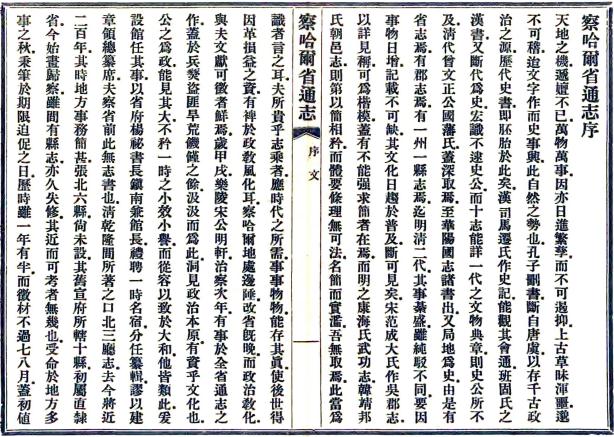 察哈爾省通志序
天地之機遞嬗不已萬物萬事因亦日進繁孳而不可遏抑上古草昧渾噩邈
不可稽迨文字作而史事興此自然之勢也孔子刪書斷自唐虞以存千古政
治之源歷代史書卽胚胎於此矣漢司馬遷氏作史記能觀其會通班固氏之
漢書又斷代爲史宏識不逮史公而十志能詳一代之文物典章則史公所不
及清代曾文正公國藩氏蓋深取焉至華陽國志諸書出又局地爲史由是有
省志焉有郡志焉有一州一縣志焉迄明清二代其事綦盛雖純駁不同要因
事物日增記載不可缺其文化日趨於普及斷可見矣宋范成大氏作吳郡志
以詳見稱可爲楷模蓋有不能强求簡者在焉而明之康海氏武功志韓靖邦
氏朝邑志則第以簡相矜而體要條理無可法名簡而實濫吾無取焉此當爲
察哈爾省通志
序文
識者言之耳夫所貴乎志乘者應時代之所需事事物物能存其眞使後世得
因革損益之資有裨於政敎風化耳察哈爾地處邊陲改省旣晚而政治敎化
與夫文獻可徵者鮮焉歲甲戌樂陵宋公明軒治察次年有事於全省通志之
作蓋於兵燹盜匪旱荒饑饉之餘汲汲而爲此洞見政治本原有資乎文化也
公之爲政能見其大不矜一時之小效小譽而從容以致於大和他皆類此爰
設館任其事以省府楊祕書長鎭南兼館長禮聘一時名宿分任纂輯謬以建
章領總纂席夫察省前此無志書也清乾隆間所著之口北三廳志去今將近
二百年其時地方事務簡甚張北六縣尙未設其舊宣府所轄十縣初屬直隸
省今始畫歸察雖間有縣志亦久失修其近而可考者無幾也受命於地方多
事之秋秉筆於期限迫促之日歷時雖一年有半而徵材不過七八月蓋初値